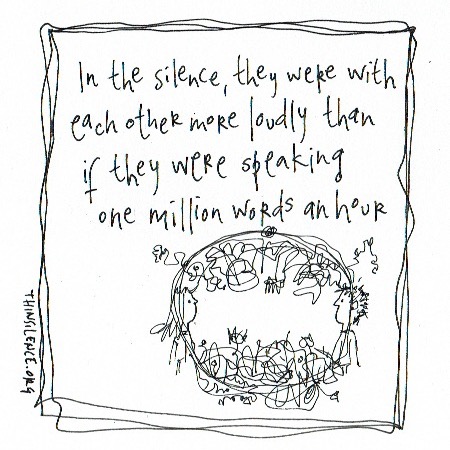 In the silence, they were with
each other more loudly than
if they were speaking
one million words an hour
THINSILENCE.ORG